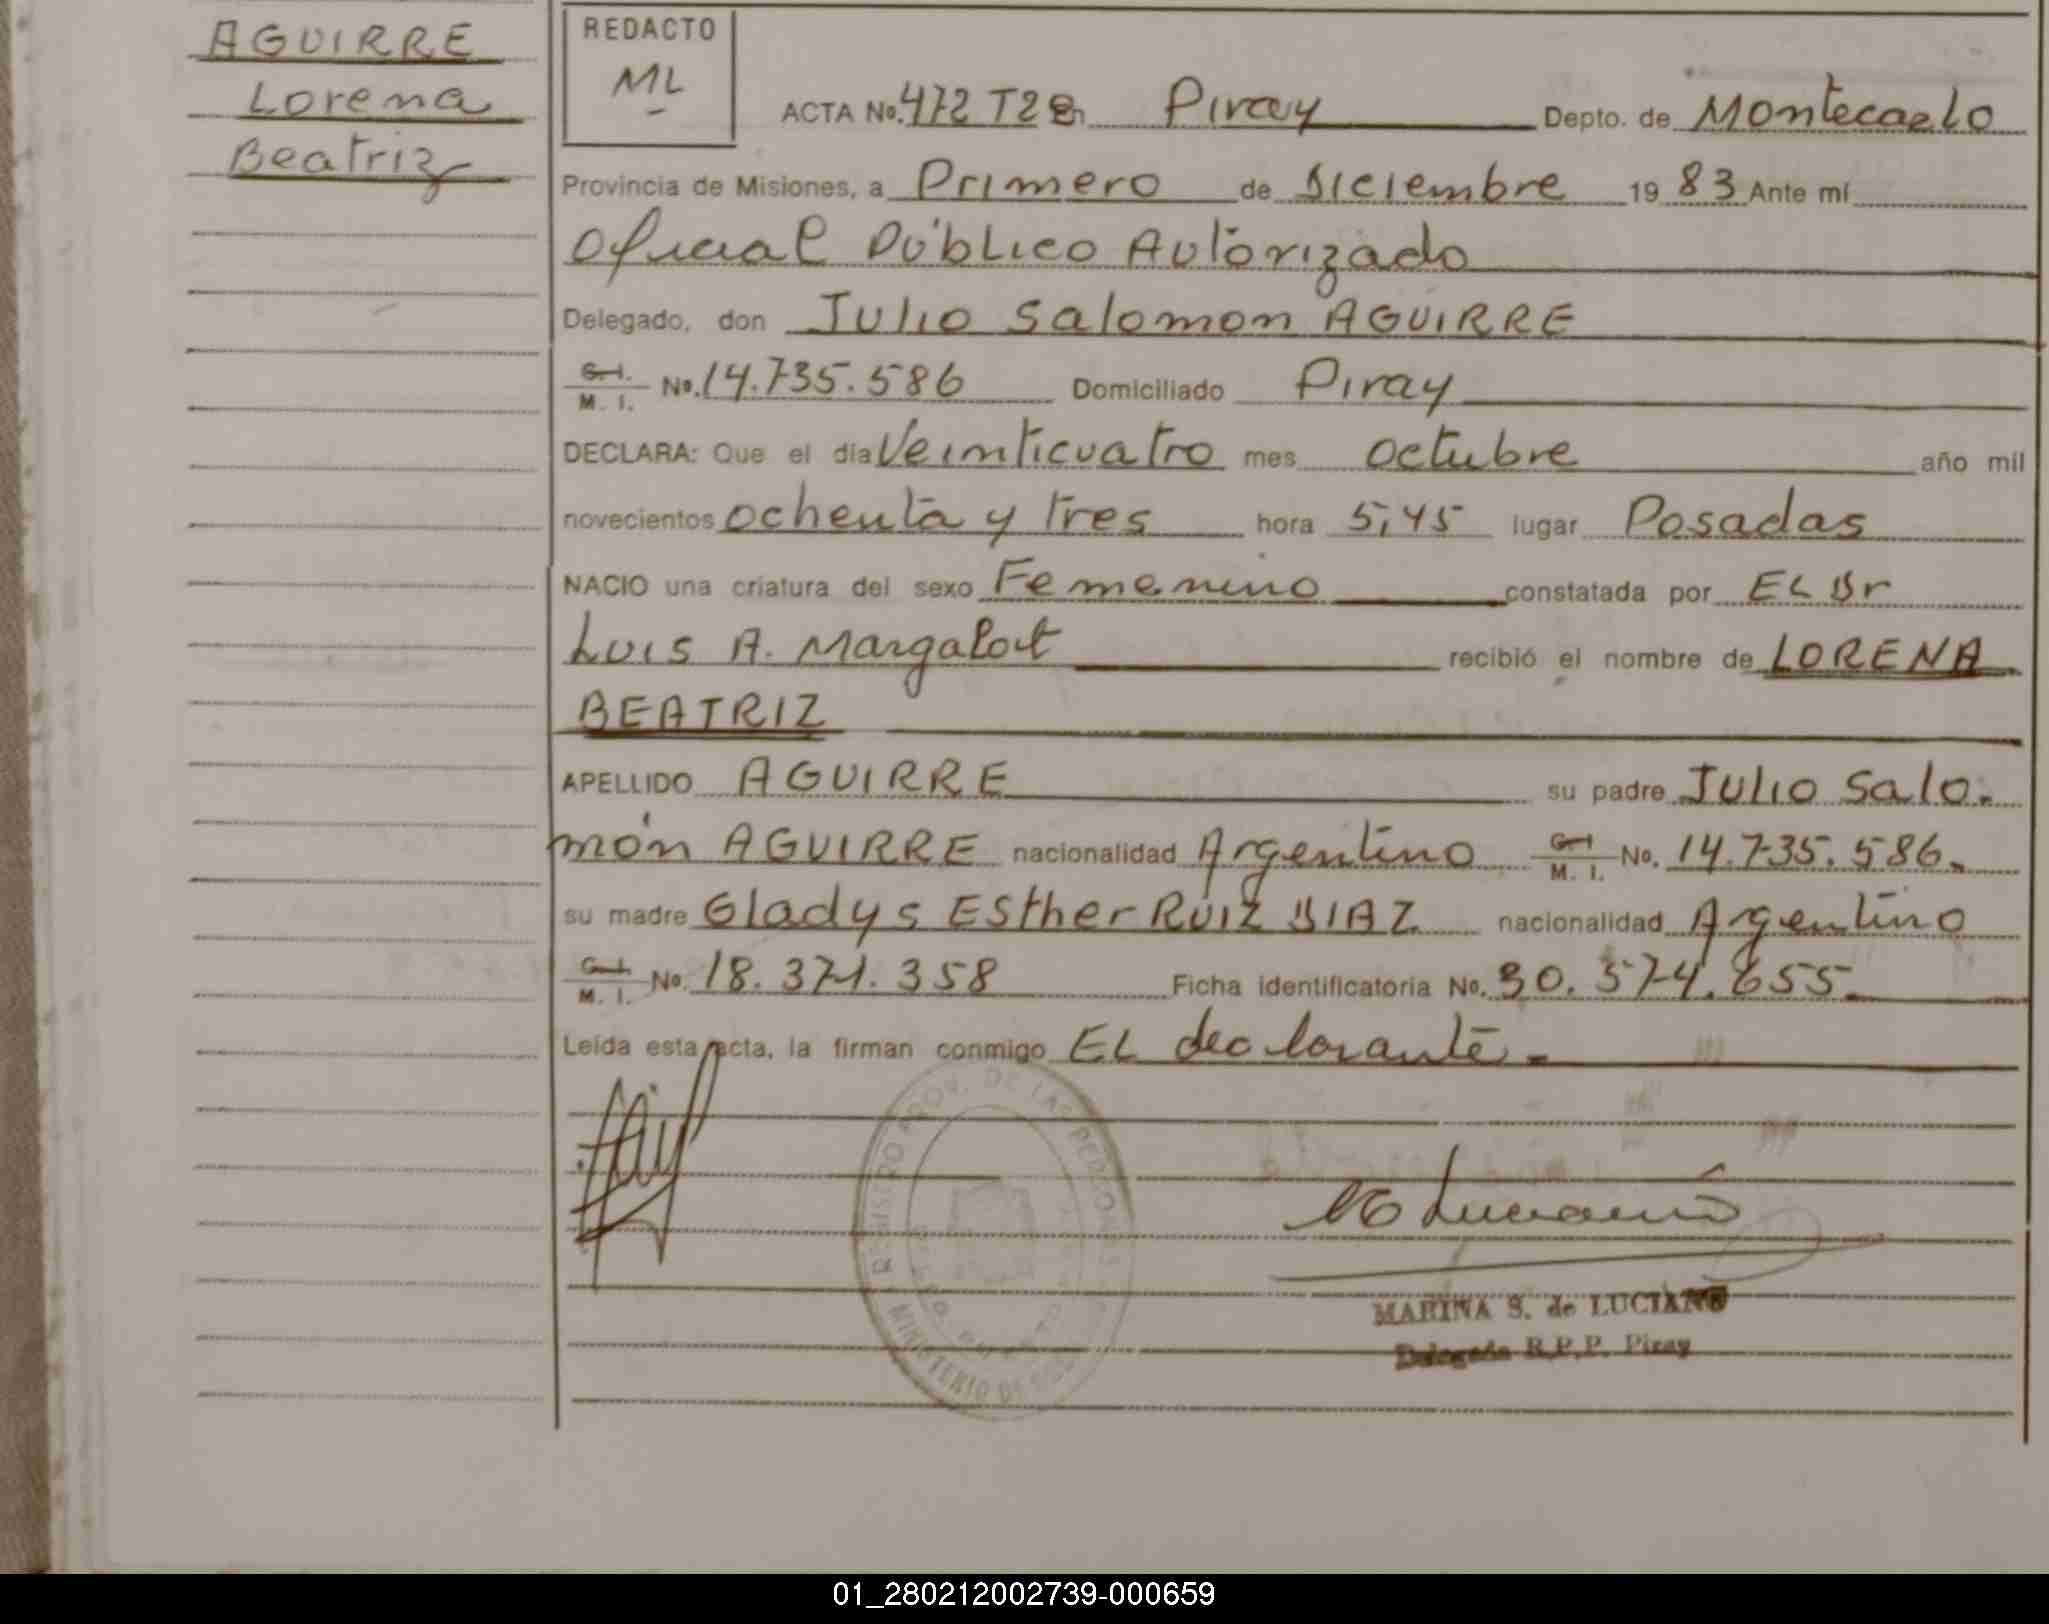 AGUIRRE
Lorena
Beatriz
REDACTO
ML
ACTA No. 472 T2 en Piray Depto. de Montecaelo
Provincia de Misiones, a Primero de Diciembre 19 83 Ante mí
Oficial Público Autorizado
Delegado, don Julio Salomon AGUIRRE
C. I.
M. I. No. 14.735.586 Domiciliado Piray
DECLARA: Que el día Veinticuatro mes octubre año mil
novecientos ochenta y tres hora 5,45 lugar Posadas
NACIO una criatura del sexo Femenino constatada por EL Dr
Luis A. Margalot recibió el nombre de LORENA
BEATRIZ
APELLIDO AGUIRRE su padre Julio Salo-
món AGUIRRE nacionalidad Argentino C. I.
M. I. No. 14.735.586.-
su madre Gladys Esther RUIZ DIAZ nacionalidad Argentino
C. I.
M. I. No. 18.371.358 Ficha identificatoria No. 30.574.655.-
Leída esta acta, la firman conmigo EL declarante.-
REGISTRO PROV. DE LAS PERSONAS
MINISTERIO DE
MARINA S. de LUCIANO
Delegada R.P.P. Piray
01_280212002739-000659